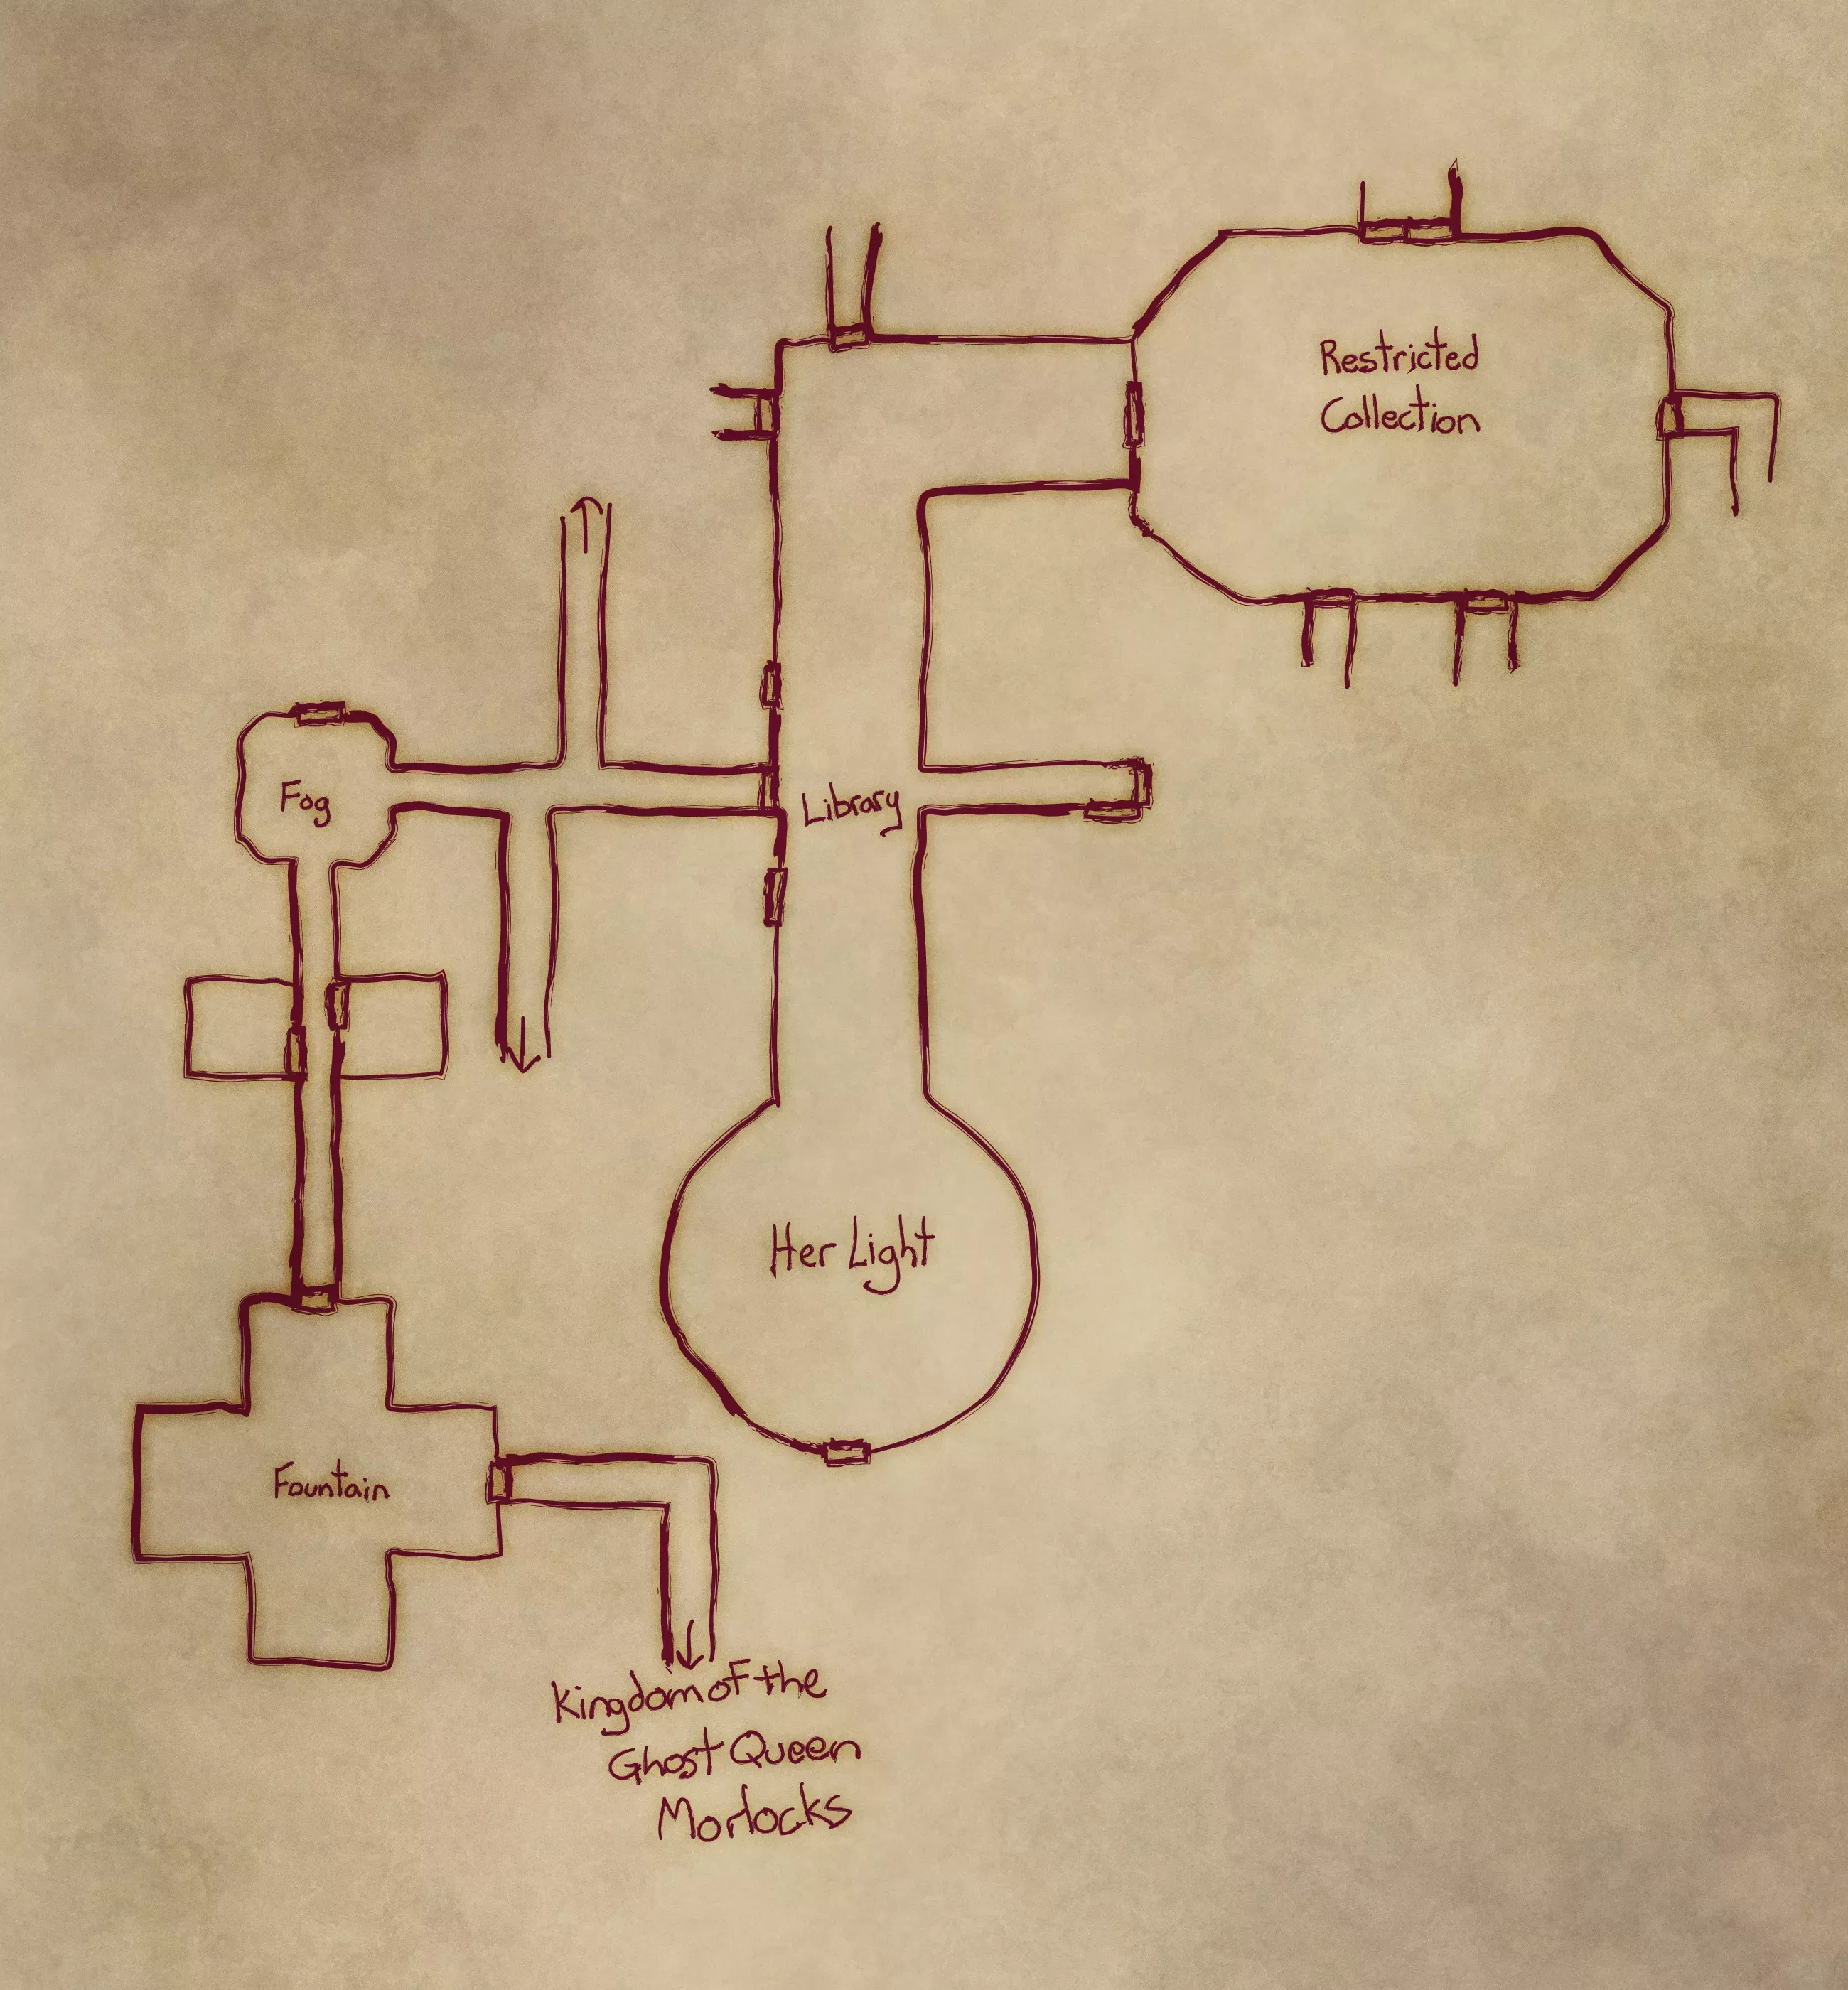 Restricted
Collection
Fog
Library
Her Light
Fountain
Kingdom of the
Ghost Queen
Morlocks